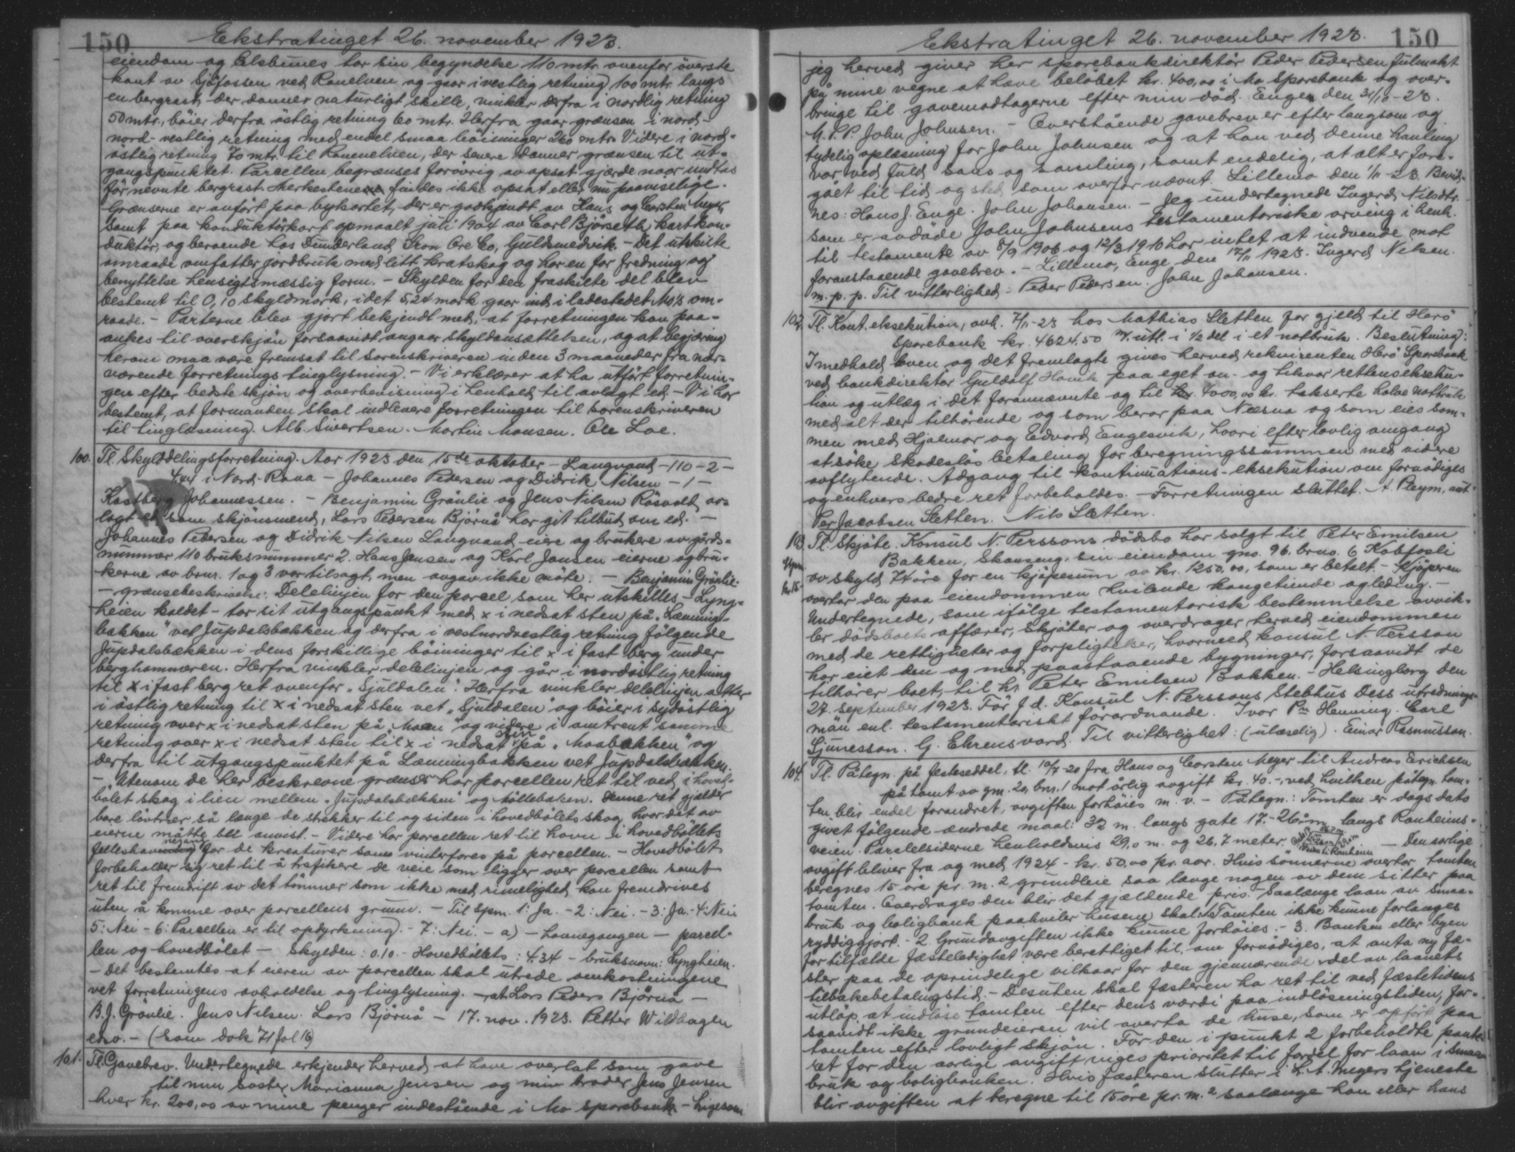 150 Ekstratinget 26. november 1923.
eiendom og Elsbunes tar sin begyndelse 110 mtr. ovenfor överste
kant av Gjöfossen ved Ranelven og gaar i vestlig retning 100 mtr. langs
en bergrast, der danner naturligt skille, vinkler derfra i nordlig retning
50 mtr., böier derfra östlig retning 60 mtr. Herfra gaar grænsen i nord-
nord-vestlig retning med endel smaa böininger 260 mtr. Videre i nord-
östlig retning 70 mtr. til Ranenelven, der senere danner grænsen til ut-
gangspunktet. Parcellen begrænses forøvrig av opsat gjærde naar undtas
för nevnte bergrast. Merkestenene fandtes ikke opsat eller nu paaviselige.
Grænserne er anfört paa bykartet, der er godkjendt av Hans og Carsten Meyer
samt paa konduktörkart opmaalt juli 1904 av Carl Björseth, kartkon-
duktör, og beroende hos Dunderland Iron Ore Co, Guldsmedvik. - Det utskilte
omraade omfatter jordbruk med litt kratskog og har en for fredning og
benyttelse hensigtsmæssig form. - Skylden for den fraskilte del blev
bestemt til 0,10 skyldmark, idet 5,24 mark gaar ind i ladestedet Mo's om-
raade. - Parterne blev gjort bekjendt med, at forretningen kan paa-
ankes til overskjön forsaavidt angaar skyldansættelsen, og at begjæring
herom maa være fremsat til Sorenskriveren inden 3 maaneder fra nær-
værende forretnings tinglysning. - Vi erklærer at ha utfört forretnin-
gen efter bedste skjön og overbevisning i henhold til avlagt ed. - Vi har
bestemt, at formanden skal indlevere forretningen til Sorenskriveren
til tinglæsning. Alb. Sivertsen. Martin Monsen. Ole Loe.
100. Tl. Skylddelingsforretning. Aar 1923 den 15de oktober - Langvand - 110 - 2 -
4,44 i Nord-Rana - Johannes Petersen og Didrik Nilsen - 1 -
Kastberg Johannessen. - Benjamin Grönlie og Jens Nilsen Rösvodt av-
lagt ed som skjönsmend, Lars Pedersen Björnå har git tilbud om ed. -
Johannes Petersen og Didrik Nilsen Langvand eiere og brukere av gårds-
nummer 110 bruksnummer 2. Hans Jensen og Karl Jansen eierne og bru-
kerne av brnr. 1 og 3 var tilsagt, men avgav ikke møte. - Benjamin Grönlie.
- grænsebeskrivelse: Delelinjen for den parcel, som her utskilles - Lyng-
heien kaldet - tar sit utgangspunkt med x i nedsat sten på „Lænning-
bakken" vet Jupdalsbækken og derfra i vestnordvestlig retning følgende
Jupdalsbækken i dens forskjellige böininger til x i fast berg under
berghammeren. Herfra vinkler delelinjen og går i nordöstlig retning
til x i fast berg ret ovenfor „Sjuldalen". Herfra vinkler delelinjen atter
i östlig retning til x i nedsat sten vet „Sjuldalen og böier i sydöstlig
retning over x i nedsat sten på Moen" og videre i omtrent samme
retning over x i nedsat sten til x i nedsat sten på „Moabakken" og
derfra til utgangspunktet på Lænningbakken vet Jupdalsbækken.
- Utenom de her beskrevne grænser har porcellen ret til ved i hoved-
bölet skog i lien mellem „Jupdalsbækken" og Höllebækken. Denne ret gjælder
bare lövtrær så lenge de strækker til og siden i hovedbölets skog hvor det av
eierne måtte bli anvist. - Videre har porcellen ret til havn i hovedbölets
felleshavnegang for de kreaturer som vinterfores på porcellen. - Hovedbölet
forbeholder sig ret til å trafikere de veie som ligger over porcellen samt
ret til fremdrift av det tömmer som ikke med rimelighed kan fremdrives
uten å komme over porcellens grunn. - Til spm. 1: Ja. - 2: Nei - 3: Ja - 4: Nei
5: Nei - 6: Parcellen er til opdyrkning. - 7: Nei. - a) - Havnegangen - parcel-
len og hovedbölet - Skylden: 0.10 - Hovedbölets: 4.34 - bruksnavn: Lyngheien.
- det bestemtes at eieren av porcellen skal utrede omkostningene
vet forretningens avholdelse og tinglysning. - at Lars Peders Björnå -
B.J. Grönlie. Jens Nilsen. Lars Björnå - 17. nov. 1923. Petter Wildhagen
(Fram Dok 71 fol 16)
101. Tl. Gavebrev. Undertegnede erkjender herved at have overlat som gave
til min søster Marianna Jensen og min broder Jens Jensen
hver kr. 200,00 av mine penger indestående i Mo sparebank - Ligesom
Ekstratinget 26. november 1923. 150
jeg herved giver her sparebankdirektör Peder Pedersen fulmakt
på mine vegne at have beløbet kr. 400,00 i Mo Sparebank og over-
bringe til gavemodtagerne efter min död. Enge den 31/10 - 23.
M.P.P John Johnsen. - Overstående gavebrev er efter langsom og
tydelig oplæsning for John Johnsen og at han ved denne handling
var ved fuld sans og samling, samt endelig, at alt er fore-
gået til tid og sted som overfor nævnt. Lillemo den 1/11 - 23. Bevid-
nes: Hans J. Enge. John Johansen. - Jeg undertegnede Ingerd Nilsdtr.
som er avdöde John Johnsens testamentoriske arving i henh.
til testamente av 5/9 1906 og 12/3 1910 har intet at indvende mot
foranstaaende gavebrev. - Lillemo, Enge den 12/11 1923. Ingerd Nilsen
m.p.p. Til vitterlighed: Peder Petersen. John Johansen.
102. Tl. Kont. eksekution, avh. 7/11-23 hos Mathias Sletten for gjeld til Herö
Sparebank kr. 4624.50 m/ utl. i 1/2 del i et notbruk. Beslutning:
I medhold loven og det fremlagte gives herved rekvirenten Herö Sparebank
ved bankdirektør Guldolf Hamik paa eget an- og tilsvar rethaveekseku-
tion og utlæg i det forannævnte og til kr. 4000,00 kr. takserte halve notbruk
med alt der tilhørende og som beror paa Næsna og som eies sam-
men med Hjalmar og Edvard Engesvik, hvori efter lovlig omgang
at söke skadeslös betaling for beregningssummen med videre
avflytende. Adgang til kontinuations-eksekution om fornødiges
og enhvers bedre ret forbeholdes. - Forretningen sluttet. A Pleym, aut.
Per Jacobsen Sletten. Nils Sletten.
103 Tl. Skjöte. Konsul N. Perssons dödsbo har solgt til Peter Emilsen
Bakken, Skamang, sin eiendom gno. 96. brno. 6 Kobforli
av skyld 74 öre for en kjöpesum av kr. 1250,00, som er betalt. - Kjöperen
overtar den paa eiendommen hvilende kongetiende og leding. -
Undertegnede, som ifölge testamentorisk bestemmelse avvik-
ler dödsboets affærer, skjöter og overdrager herved eiendommen
med de rettigheter og forpligtelser, hvormed konsul N Persson
har eiet den og med paastaaende bygninger, forsaavidt de
tilhører boet, til hr. Peter Emilsen Bakken. - Helsingborg den
27. september 1923. För f. d. Konsul N. Perssons Sterbhus Dess utrednings-
män enl. testamentariskt förordnande. Ivar Pn Henning. Carl
Gjunesson. G. Ehrensvard. Til vitterlighet: (ulæselig). Einar Rasmusson.
104. Tl. Påtegn. på festeseddel, tl. 10/4-20 fra Hans og Carsten Meyer til Andreas Erichsen
på tomt av gnr. 20, bnr. 1 mot årlig avgift kr. 40. - ved hvilken påtegn. tom-
ten blir endel forandret, avgiften forhöies m. v. - Påtegn: Tomten er dags dato
givet følgende ændrede maal: 32 m. langs gate 17. - 26 m langs Ranheims-
veien. Parcelsiderne henholdsvis 29,0 m. og 26.7 meter. - Den aarlige
avgift bliver fra og med 1924 - kr. 50,00 pr. aar. Hvis sønnerne overtar tomten
beregnes 15 öre pr. m.2 grundleie saa lenge nogen av dem sitter paa
tomten. Overdrages den blir det gjældende pris. Saalænge laan av Smaa-
bruk og boligbank paahviler husene skal: 1. Tomten ikke kunne forlanges
ryddiggjort. - 2. Grundavgiften ikke kunne forhöies. - 3. Banken eller byen
for tilfælde fæsteledighet være berettiget til om fornødiges, at anta ny fæ-
ster paa de oprindelige vilkaar for den gjenværende del av laanets
tilbakebetalingstid. - Desuten skal fæsteren ha ret til ved fæstetidens
utløp, at indlöse tomten efter dens værdi paa indlösningstiden, for-
saavidt ikke grundeieren vil overta de huse, som er opfört paa
tomten efter lovligt skjön. För den i punkt 2 forbeholdte pante-
ret for den aarlige avgift viges prioritet til fordel for laan i Smaa-
bruk og boligbanken. Hvis fæsteren slutter i L. A. Meyers tjeneste
blir avgiften at beregne til 15 öre pr. m.2 saalænge han eller hans